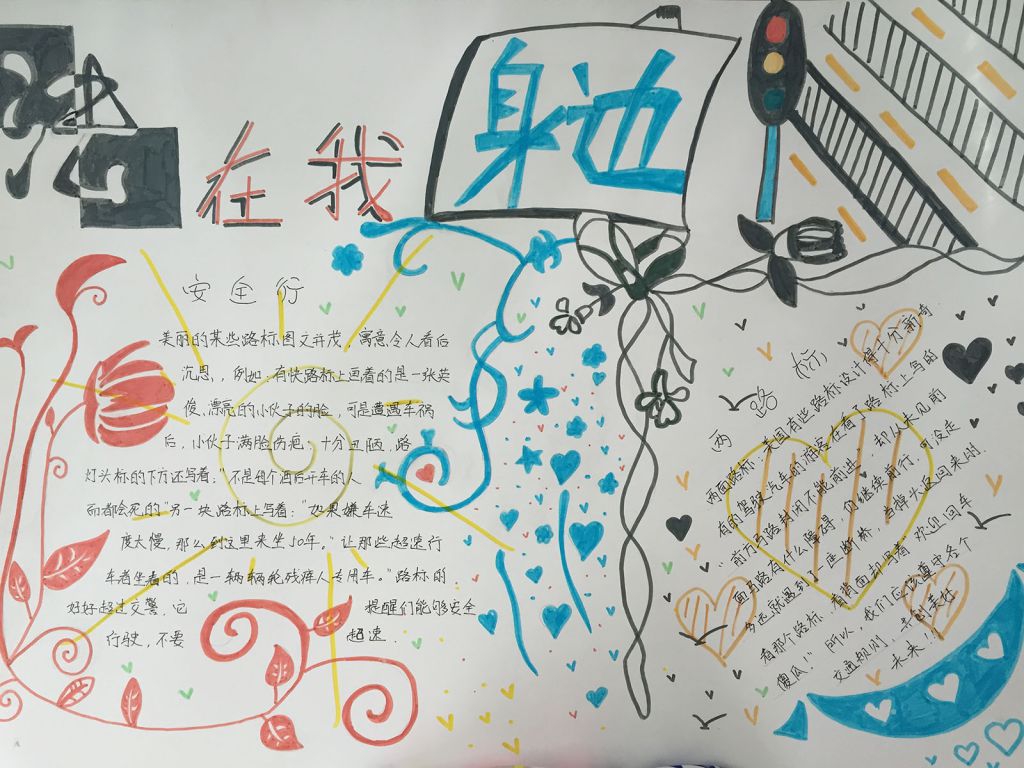 在我身边
安全行
美丽的某些路标图文并茂，寓意令人看后
沉思，例如：有快路标上画着的是一张英
俊、漂亮的小伙子的脸，可是遭遇车祸
后，小伙子满脸伤疤，十分丑陋，路
灯头标的下方还写着："不是每个酒后开车的人
而都会死的"另一块路标上写着："如果嫌车速
度太慢，那么到这里来坐50年。"让那些超速行
车者坐着的，是一辆辆轮残疾人专用车。"路标的
好好超过交警，它 提醒们能够安全
行驶，不要 超速
两路标
两面路标，美国有些路标设计得十分新奇
有的驾驶汽车的旅客在看了路标上写的
"前方马路封闭不能前进"，却从未见前
面马路有什么障碍，仍继续前行，可没走
多远就遇到了一座断桥，当掉头返回来时，
看那个路标，看背面却写着"欢迎回车
傻瓜！"所以，我们应该遵守各个
交通规则，来创美好
未来！！！